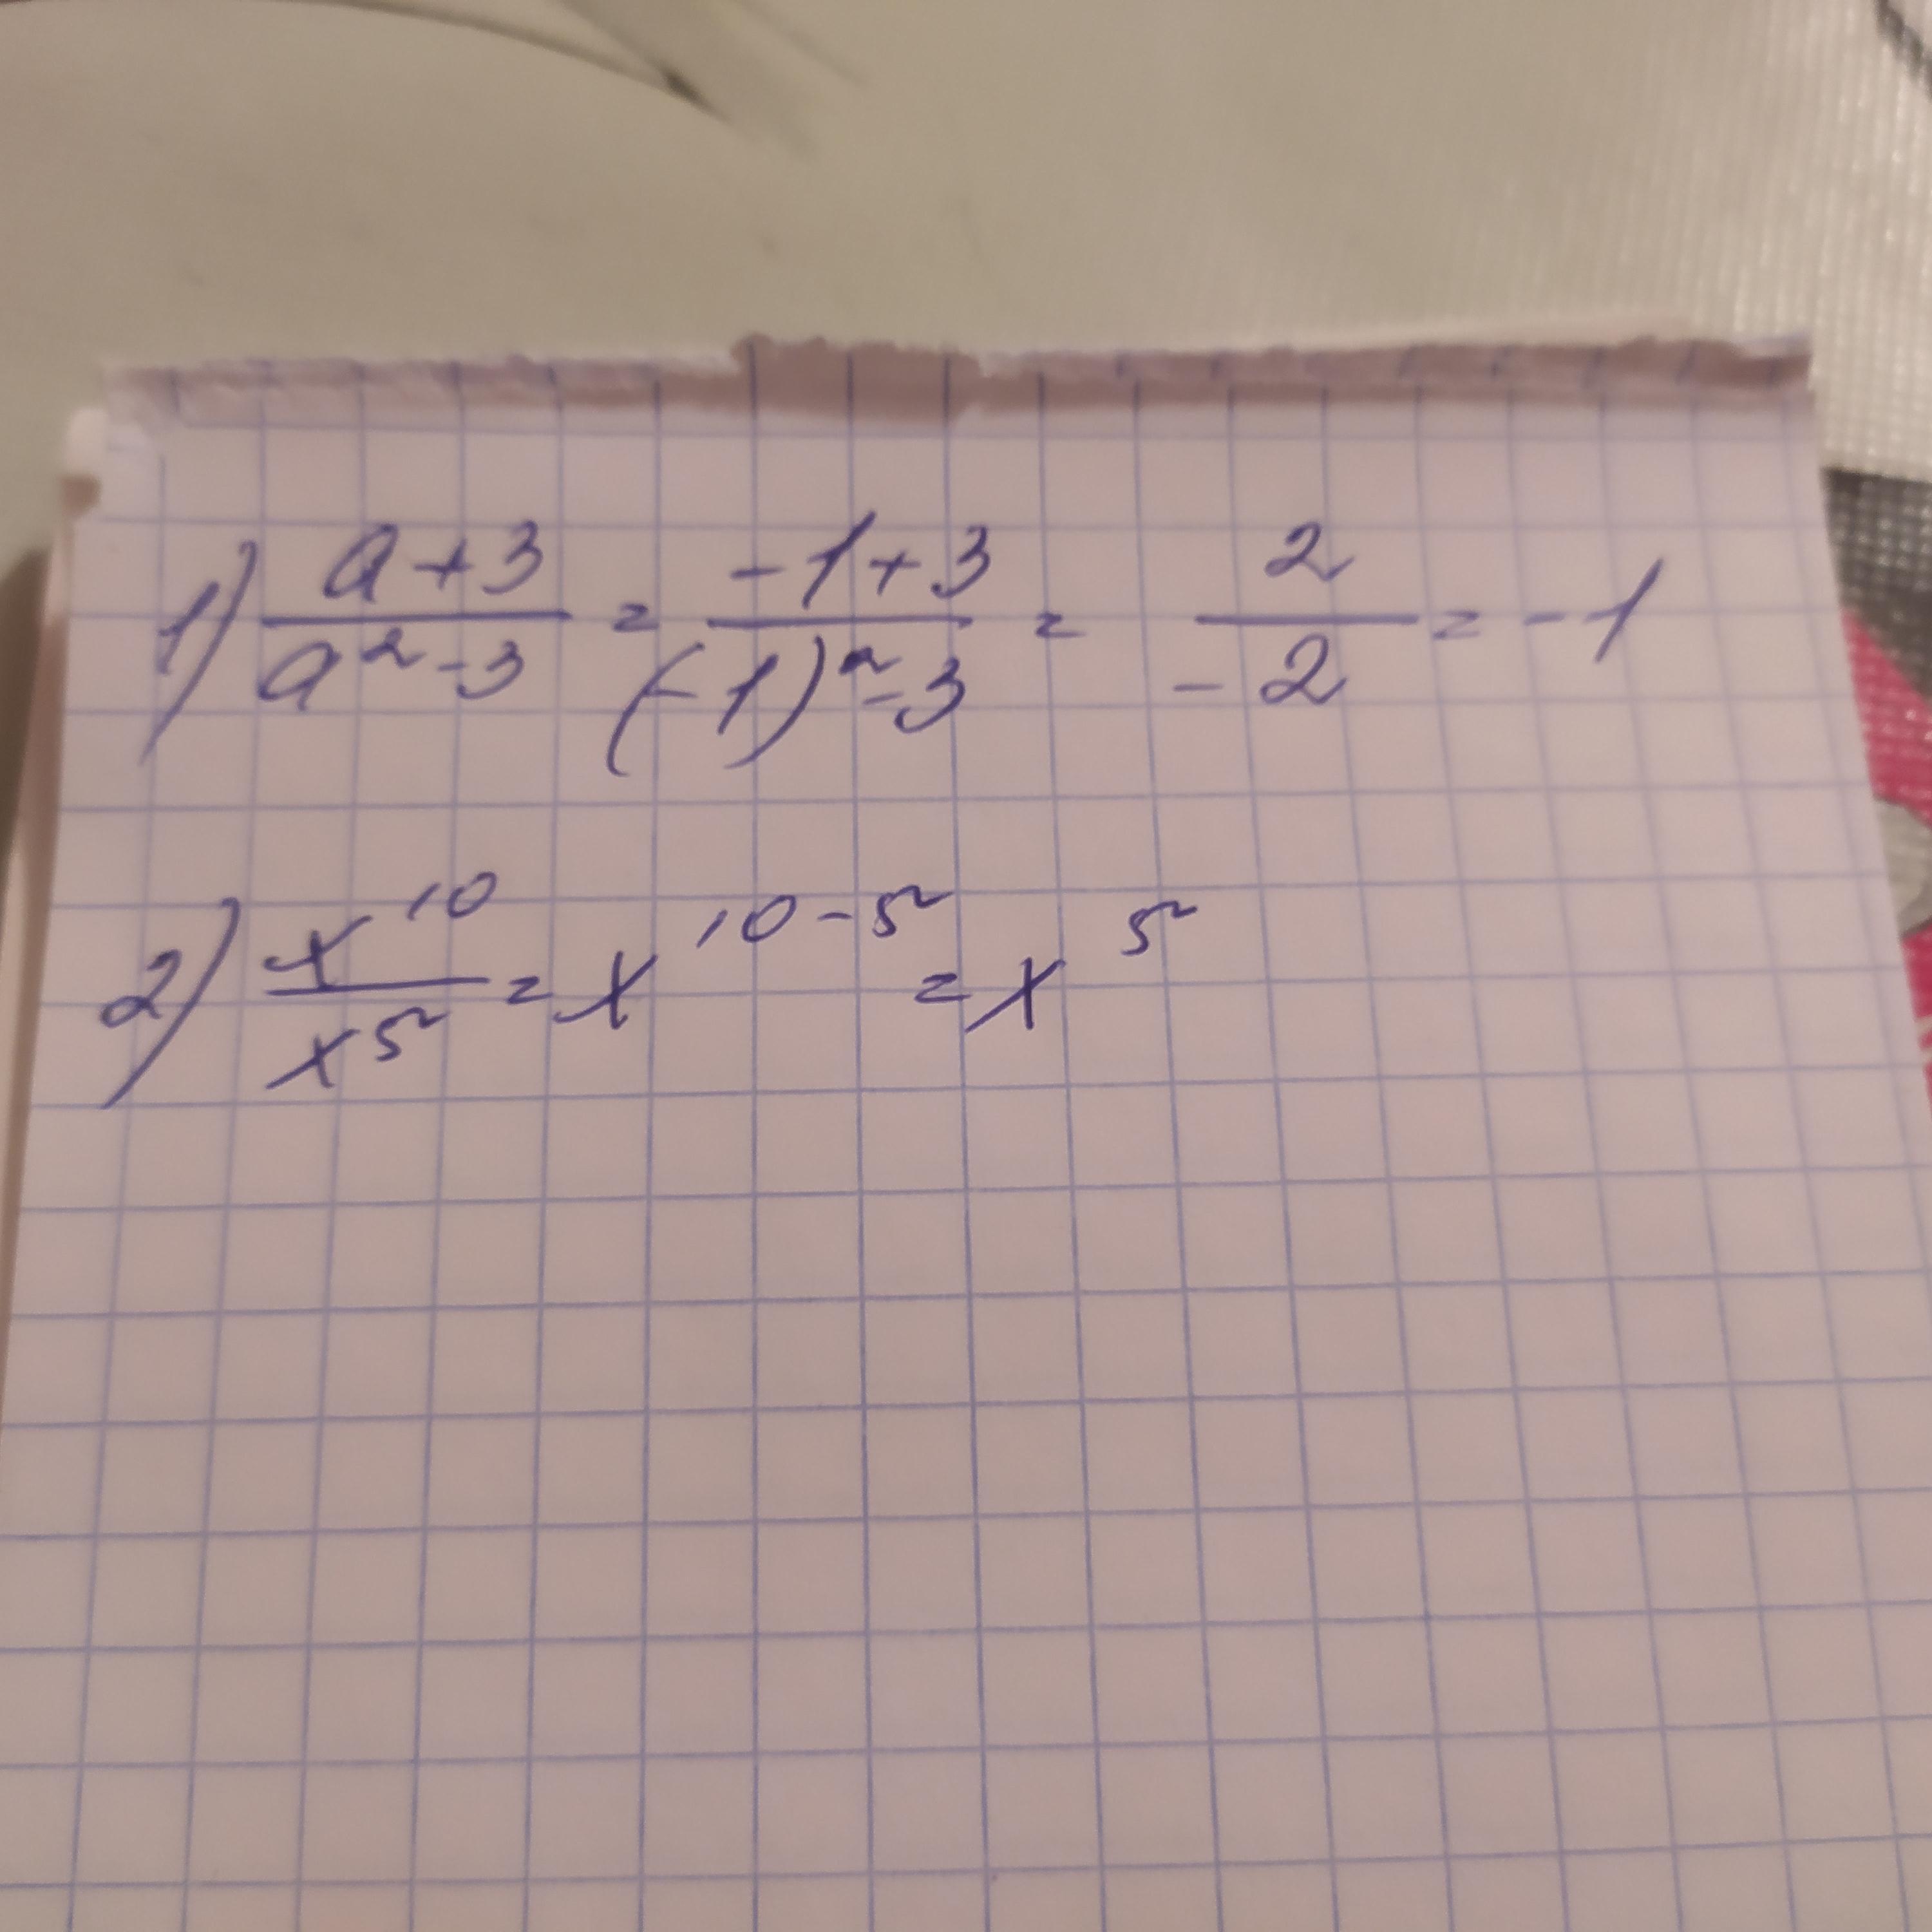 1) (a+3)/(a²-3) = (-1+3)/((-1)²-3) = 2/-2 = -1
2) x¹⁰/x⁵ = x¹⁰⁻⁵ = x⁵